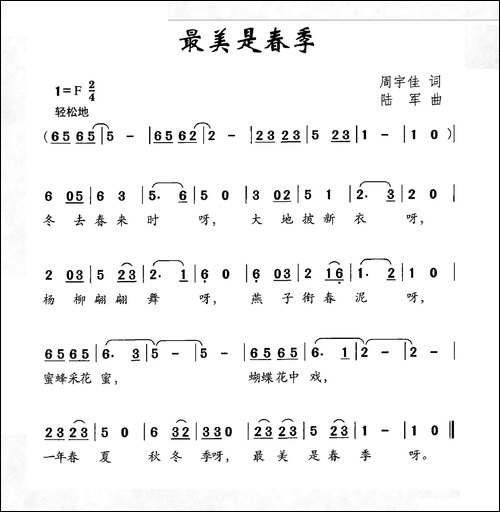 最美是春季
1=F 2/4
周宇佳 词
轻松地
陆 军 曲
(6565|5 -|6562|2 -|2323|5 23|1 -|1 0)|
6 05|6 3|5· 6|5 0|3 02|5 1|2· 3|2 0|
冬 去春来 时 呀, 大 地披新 衣 呀,
2 03|5 23|2· 1|6 0|6 03|2 16|1· 2|1 0|
杨 柳翩翩 舞 呀, 燕 子衔春 泥 呀,
6565|6· 3|5 -|5 -|6565|6· 1|2 -|2 -|
蜜蜂采花 蜜, 蝴蝶花中 戏,
2323|5 0|6 32|330|2323|5 23|1 -|1 0‖
一年春 夏 秋冬 季呀, 最 美 是春 季 呀。